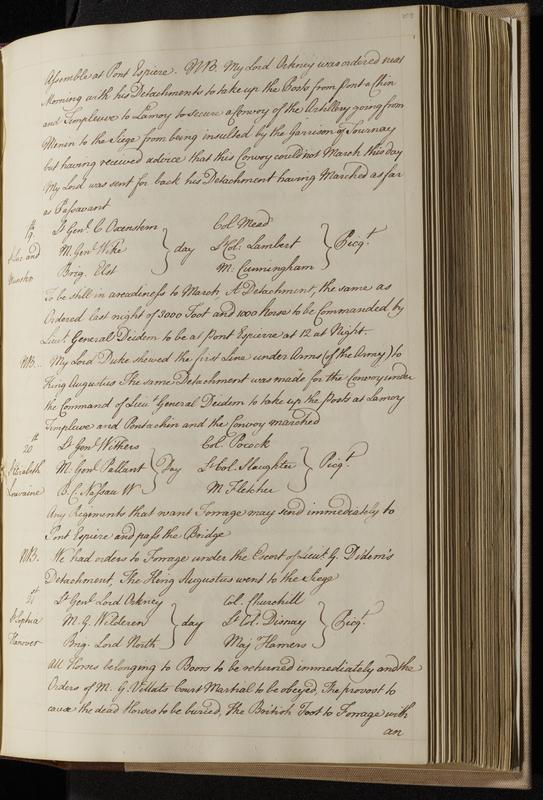 Assemble at Pont Espiere. NB. My Lord Orkney was ordered next
Morning with his Detachments to take up the Posts from Pont a Chin
and Templeuve to Lanoy to secure a Convoy of the Artillery going from
Menin to the Siege from being insulted by the Garrison of Tournay
but having received advice that this Convoy could not March this day
My Lord was sent for back his Detachment having Marched as far
as Passavant
19th Lt Genl. C Oxenstern Col Mead
and M. Genl Wike } day Lt Col: Lambert } Picqt.
Brig. Elst M: Cunningham
To be still in areadiness to March, A Detachment, the same as
Ordered last night of 3000 Foot and 1000 horse to be Commanded by
Lieut. General Dedem to be at Pont Espierre at 12 at Night.
NB. My Lord Duke shewed the first Line under Arms (of the Army) to
King Augustus The same Detachment was made for the Convoy under
the Command of Lieut General Dedem to take up the Posts as Lanoy
Templeuve and Pontachin and the Convoy marched
20th Lt Genl Withers Col. Pocock
Elizabeth M. Genl Pallant } Day Lt Col. Slaughter } Picqt.
Louvaine B. C. Nassau W M Fletcher
Any Regiments that want Forrage may send immediately to
Pont Espiere and pass the Bridge
NB. We had orders to Forrage under the Escort of Lieut. G. Didem's
Detachment, The King Augustus went to the Siege
21st Lt Genl Lord Orkney Col. Churchill
Sophia M. G. Welderen } day Lt Col. Disnay } Picqt.
Hanover Brig. Lord North Maj Hamers
All Horses belonging to Boors to be returned immediately and the
Orders of M. G. Vellats Court Martial to be obeyed, The provost to
cause the dead Horses to be buried, The British Foot to Forrage with
an